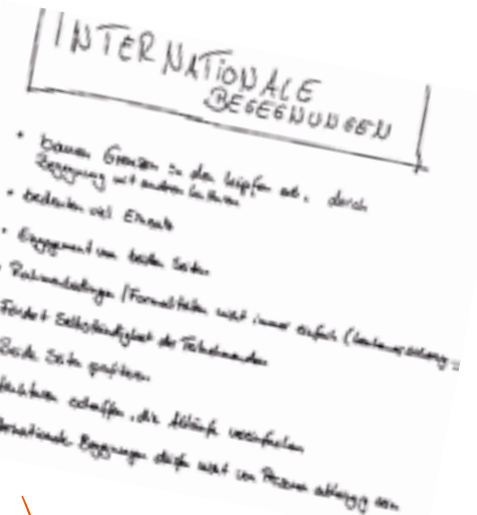 INTERNATIONALE
BEGEGNUNGEN
• bauen Grenzen in den Köpfen ab, durch
Begegnung mit anderen Kulturen
• bedeuten viel Einsatz
• Engagement von beiden Seiten
Rahmenbedingungen / Formalitäten nicht immer einfach
Fördert Selbständigkeit der Teilnehmenden
Beide Seiten profitieren
schaffen, die Abläufe vereinfachen
Begegnungen dürfen nicht von Personen abhängig sein